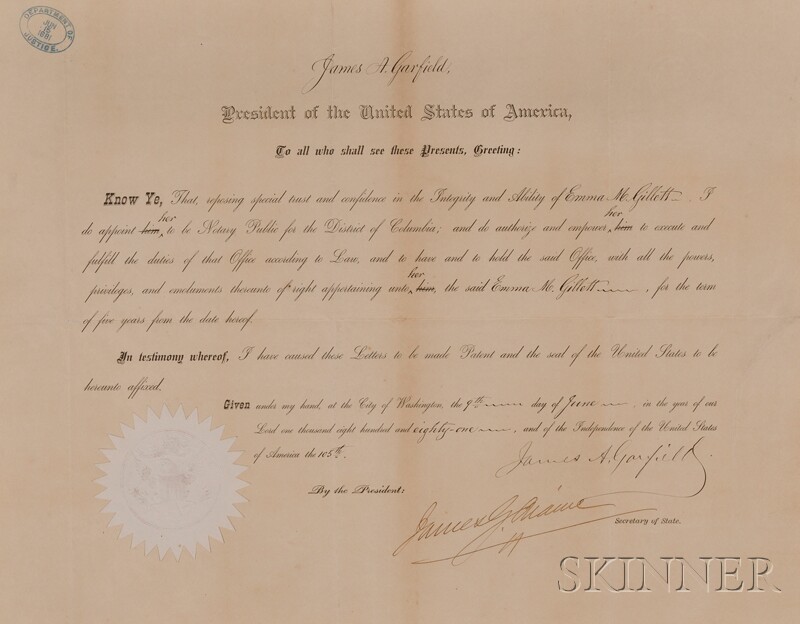 DEPARTMENT OF
JUN
1881
JUSTICE.
James A. Garfield,
President of the United States of America,
To all who shall see these Presents, Greeting:
Know Ye, That, reposing special trust and confidence in the Integrity and Ability of Emma M. Gillett, I
her her
do appoint him, to be Notary Public for the District of Columbia; and do authorize and empower him to execute and
fulfill the duties of that Office according to Law, and to have and to hold the said Office, with all the powers,
her
privileges, and emoluments thereunto of right appertaining unto him, the said Emma M. Gillett, for the term
of five years from the date hereof.
In testimony whereof, I have caused these Letters to be made Patent and the seal of the United States to be
hereunto affixed.
Given under my hand, at the City of Washington, the 9th day of June, in the year of our
Lord one thousand eight hundred and eighty-one, and of the Independence of the United States
of America the 105th.
James A. Garfield
By the President:
James G. Blaine
Secretary of State.
SKINNER